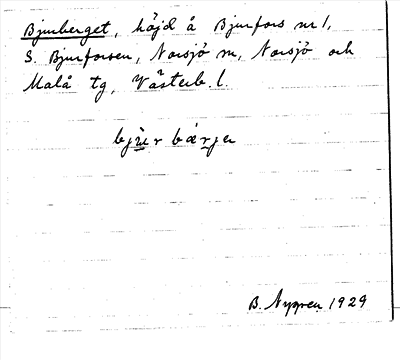 Bjurberget, höjd å Bjurfors nr 1,
S. Bjurforsen, Norsjö sn, Norsjö och
Malå tg, Västerb. l.
bjùr bærjer
B. Nygren 1929